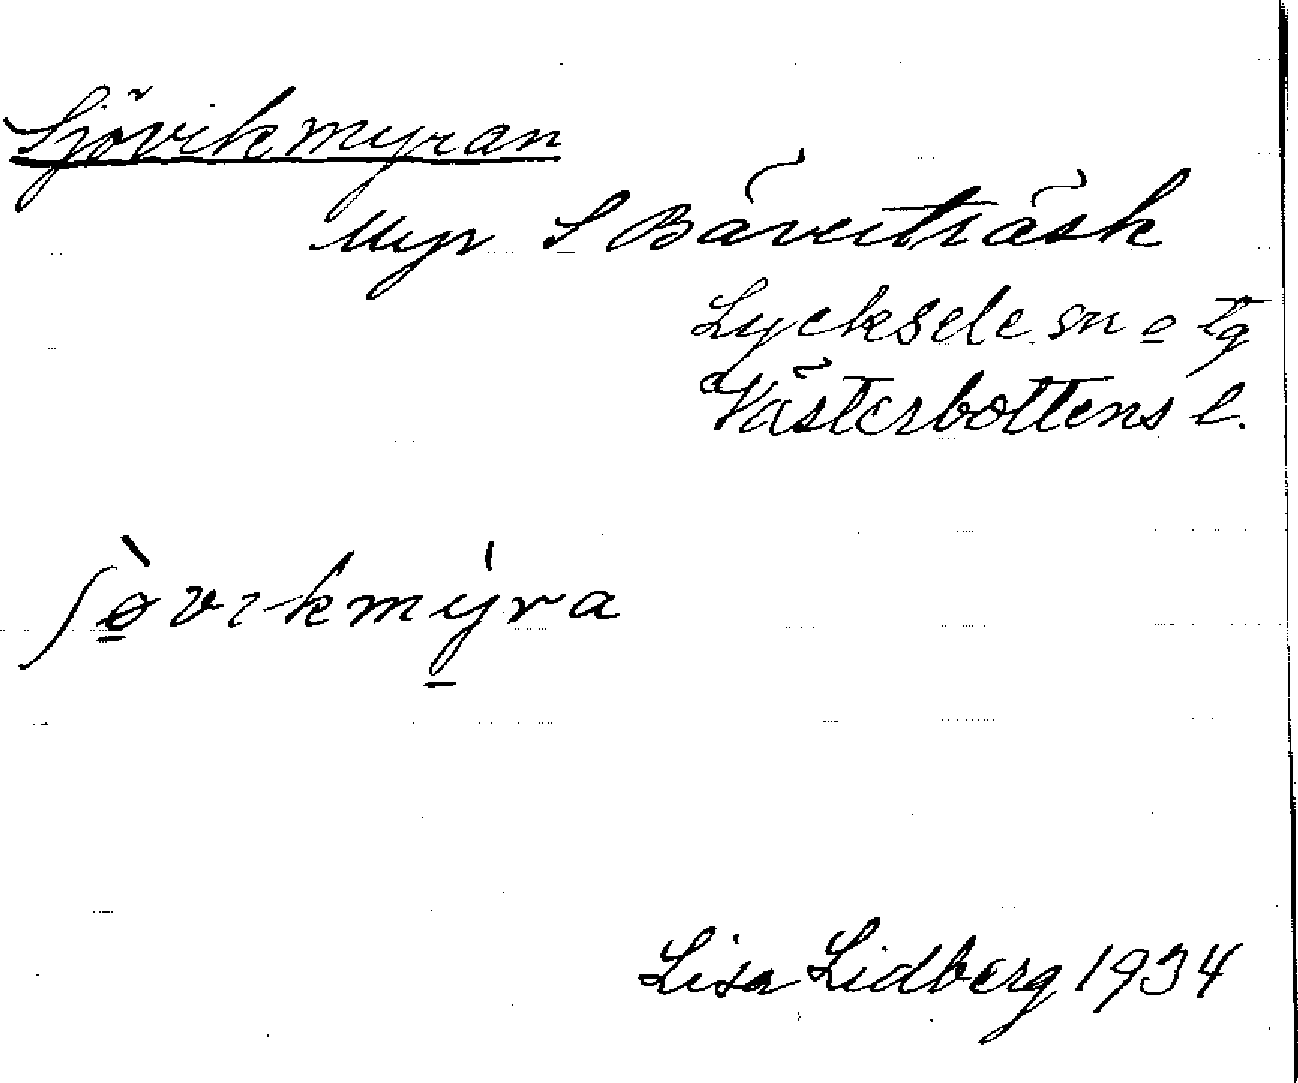 Sjövikmyran
Myr S Bäverträsk
Lycksele sn o tg
Västerbottens l.
ʃø̀vikmy̍ra
Lisa Lidberg 1934